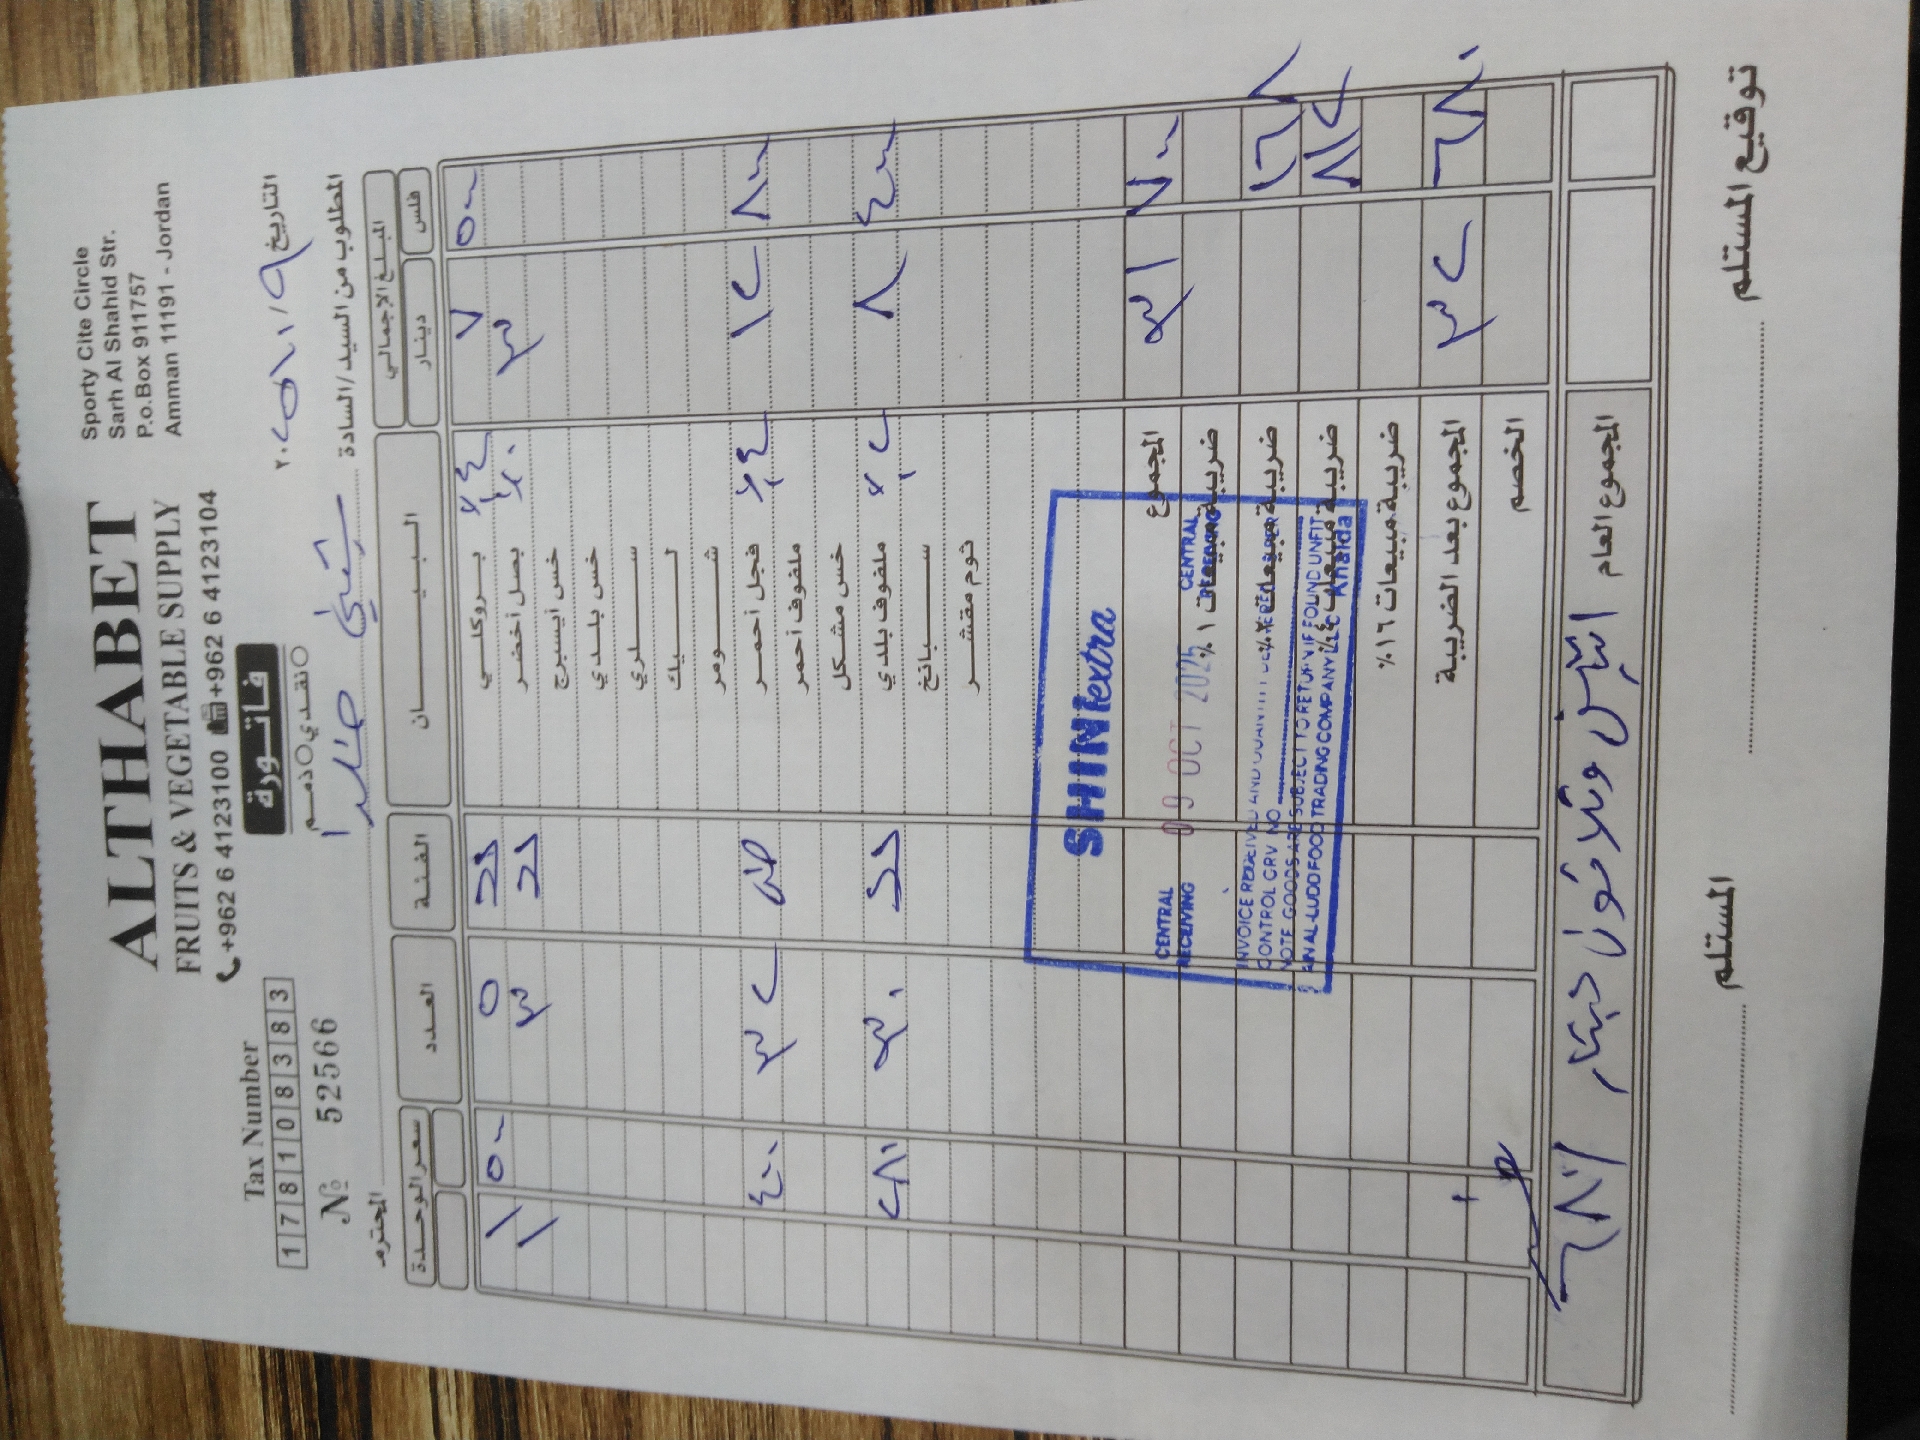 ALTHABET
FRUITS & VEGETABLE SUPPLY
+962 6 4123100 +962 6 4123104
Sporty Cite Circle
Sarh Al Shahid Str.
P.o.Box 911757
Amman 11191 - Jordan
Tax Number
1 7 8 1 0 8 3 8 3
№ 52566
فاتورة
نقدي ذمم
التاريخ
المطلوب من السيد/السادة
المحترم
المبلغ الاجمالي
دينار فلس
البيـــــان
الفئة
العدد
سعر الوحدة
بروكلي ٪٤ ٥ ٧ ٥٠٠
بصل أخضر ٪٠ ٣ ١ ٣
خس أيسبرج
خس بلدي
سلري
ليك
شومر
فجل أحمر ٪٤ ٣٢ ٤٠٠ ١٢ ٨٠٠
ملفوف أحمر
خس مشكل
ملفوف بلدي ٣٠ ٢٨٠ ٨ ٤٠٠
سبانخ
ثوم مقشر
المجموع ٣١ ٧٠٠
ضريبة مبيعات ١٪
ضريبة مبيعات ٢٪ ١٦٨
ضريبة مبيعات ٤٪ ٨١٢
ضريبة مبيعات ١٦٪
المجموع بعد الضريبة ٣٢ ٦٨٠
الخصم
المجموع العام
SHINI extra
CENTRAL RECEIVING
CENTRAL
09 OCT 2025
INVOICE RECEIVED AND
CONTROL GRV NO
NOTE GOODS ARE SUBJECT TO RETURN IF FOUND UNFIT
AN AL-LUDD FOOD TRADING COMPANY LLC Khalda
المستلم
توقيع المستلم